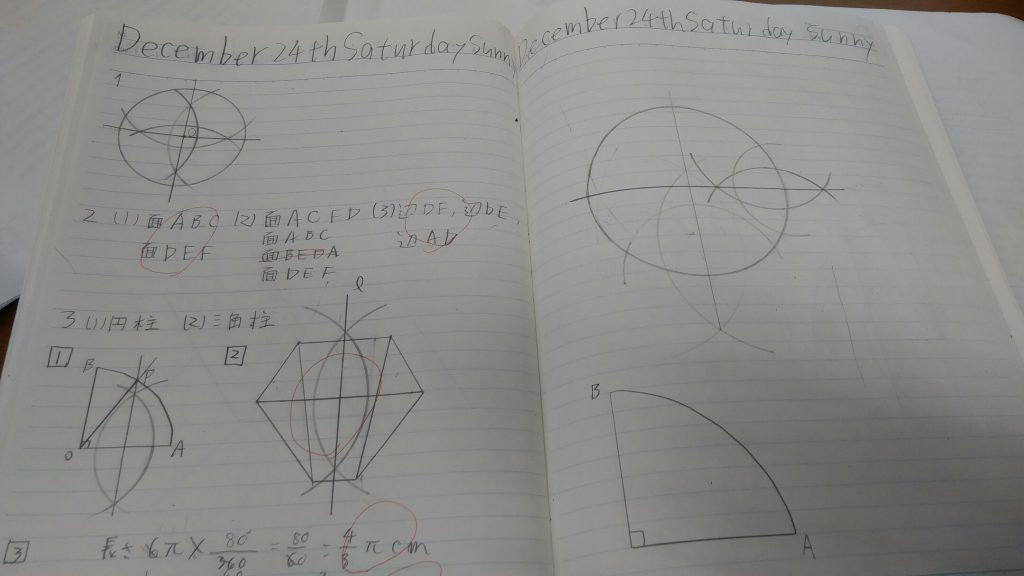 December 24th Saturday Sunny
1
2 (1) 面ABC (2) 面ACFD (3) 辺DF, 辺DE,
面DEF 面ABC 辺AD
面BEDA
面DEF
3 (1) 円柱 (2) 三角柱
l
1 B P 2
O A
3 長さ 6π× 80/360 = 80/60 = 4/3 π cm
December 24th Saturday Sunny
B
A